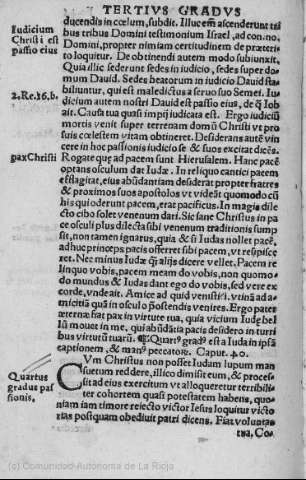 TERTIVS GRADVS
Iudicium
Christi est
passio eius
2.Re.16.b.
pax Christi
Quartus
gradus pas
sionis,
ducendis in cœlum, subdit. Illuc em̃ ascenderunt tri
bus tribus Domini testimonium Israel, ad con. no.
Domini, propter nimiam certitudinem de præteri
to loquitur. De obtinendi autem modo subiunxit.
Quia illic sederunt sedes in iudicio, sedes super do
mum Dauid. Sedes beatorum in iudicio Dauid sta
biliuntur, qui est maledictus a seruo suo Semei. Iu
dicium autem nostri Dauid est passio eius, de q̃ Iob
ait. Causa tua quasi impij iudicata est. Ergo iudiciũ
mortis venit super terream domũ Christi vt pro
suis cœlestem vitam obtineret. Desiderans autẽ vin
cere in hoc passionis iudicio se & suos excitat dicẽs.
Rogate quæ ad pacem sunt Hierusalem. Hanc pacẽ
optans osculum dat Iudæ. In reliquo cantici pacem
efflagitat, eius abũdantiam desiderat propter fratres
& proximos suos apostolos vt videāt quomodo cũ
his qui oderunt pacem, erat pacificus. In magis dile
cto cibo solet venenum dari. Sic sane Christus in pa
ce osculi plus dilecta sibi venenum traditionis sump
sit, non tamen ignarus, quia & si Iudas nollet pacẽ,
adhuc princeps pacis offerret sibi pacem, vt resipisce
ret. Nec minus Iudæ q̃ alijs dicere vellet. Pacem re
linquo vobis, pacem meam do vobis, non quomo
do mundus & Iudas dant ego do vobis, sed vere ex
corde, vnde ait. Amice ad quid venisti? vtinã ad a-
micitiã quã in osculo p̃ostendis venires. Ergo pater
æternæ fiat pax in virtute tua, quia vicium Iudę bel
lũ mouet in me, qui abũdãtia pacis desidero in turri
bus virtutũ tuarũ. ¶Quart⁹ grad⁹ est a Iuda in ipsã
captionem, & man⁹ peccatorũ. Caput. 40.
CVm Christus non posset Iudam lupum man
suetum reddere, illico dimisit eum, & proces-
sit ad eius exercitum vt alloqueretur terribili-
ter cohortem quasi potestatem habens, quo-
niam iam timore reiecto victor Iesus loquitur victo
rias postquam obediuit patri dicens. Fiat voluntas
tua. Co.
(c) Comunidad Autonoma de La Rioja